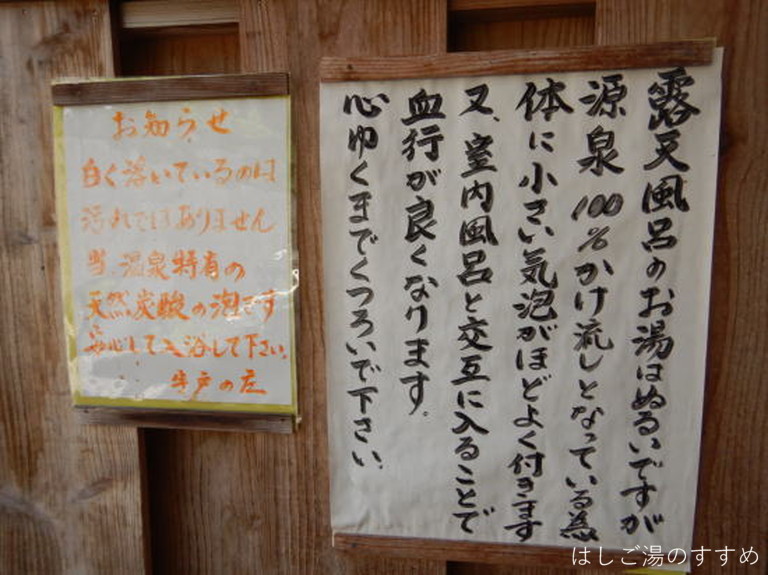 お知らせ
白く浮いているのは
汚れではありません
当、温泉特有の
天然炭酸の泡です
安心して入浴して下さい。
牛戸の庄
露天風呂のお湯はぬるいですが
源泉100%かけ流しとなっている為
体に小さい気泡がほどよく付きます
又、室内風呂と交互に入ることで
血行が良くなります。
心ゆくまでくつろいで下さい。
はしご湯のすすめ